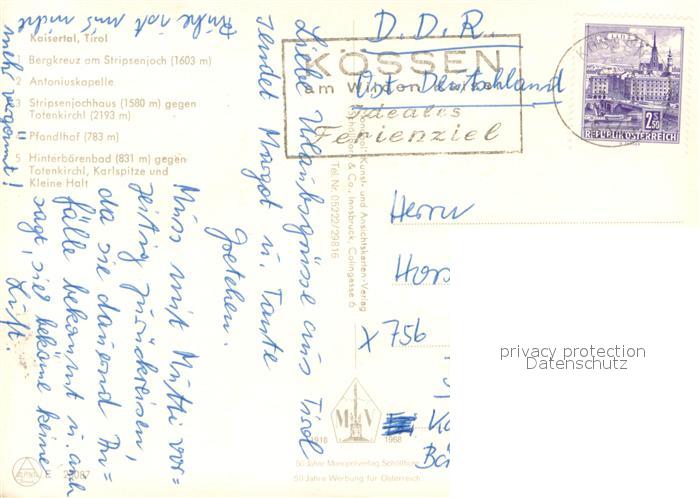 Kaisertal, Tirol
1 Bergkreuz am Stripsenjoch (1603 m)
2 Antoniuskapelle
3 Stripsenjochhaus (1580 m) gegen
Totenkirchl (2193 m)
4 Pfandlhof (783 m)
5 Hinterbärenbad (831 m) gegen
Totenkirchl, Karlspitze und
Kleine Halt
Liebe Urlaubsgrüsse aus Tirol
sendet Margot u. Tante
Gretchen.
Muss mit Mutti vor=
zeitig zurückreisen,
da sie dauernd An=
fälle bekommt u. auch
sagt, sie bekäme keine
Luft.
Ruhe ist uns nicht
mehr vergönnt!
KÖSSEN
am Wilden Kaiser
Ideales
Ferienziel
D.D.R.
Ost-Deutschland
REPUBLIK ÖSTERREICH
2.50
Kunst- und Ansichtskarten-Verlag
& Co., Innsbruck, Colingasse 6
Tel. Nr. 05222/29816
Herrn
Hors
X 756
privacy protection
Datenschutz
M V
1918 1968
50 Jahre Monopolverlag Schöllhorn
50 Jahre Werbung für Österreich
E